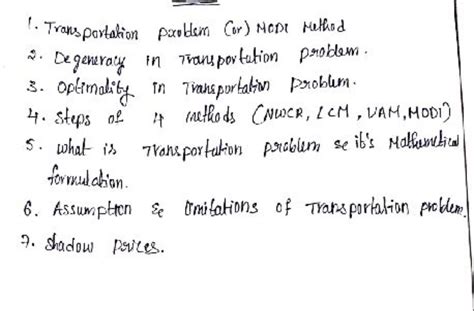 1. Transportation problem (or) MODI Method
2. Degeneracy in Transportation problem.
3. Optimality in Transportation Problem.
4. Steps of 4 methods (NWCR, LCM, VAM, MODI)
5. what is Transportation problem & it's Mathematical
formulation.
6. Assumption & limitations of Transportation problem.
7. Shadow prices.